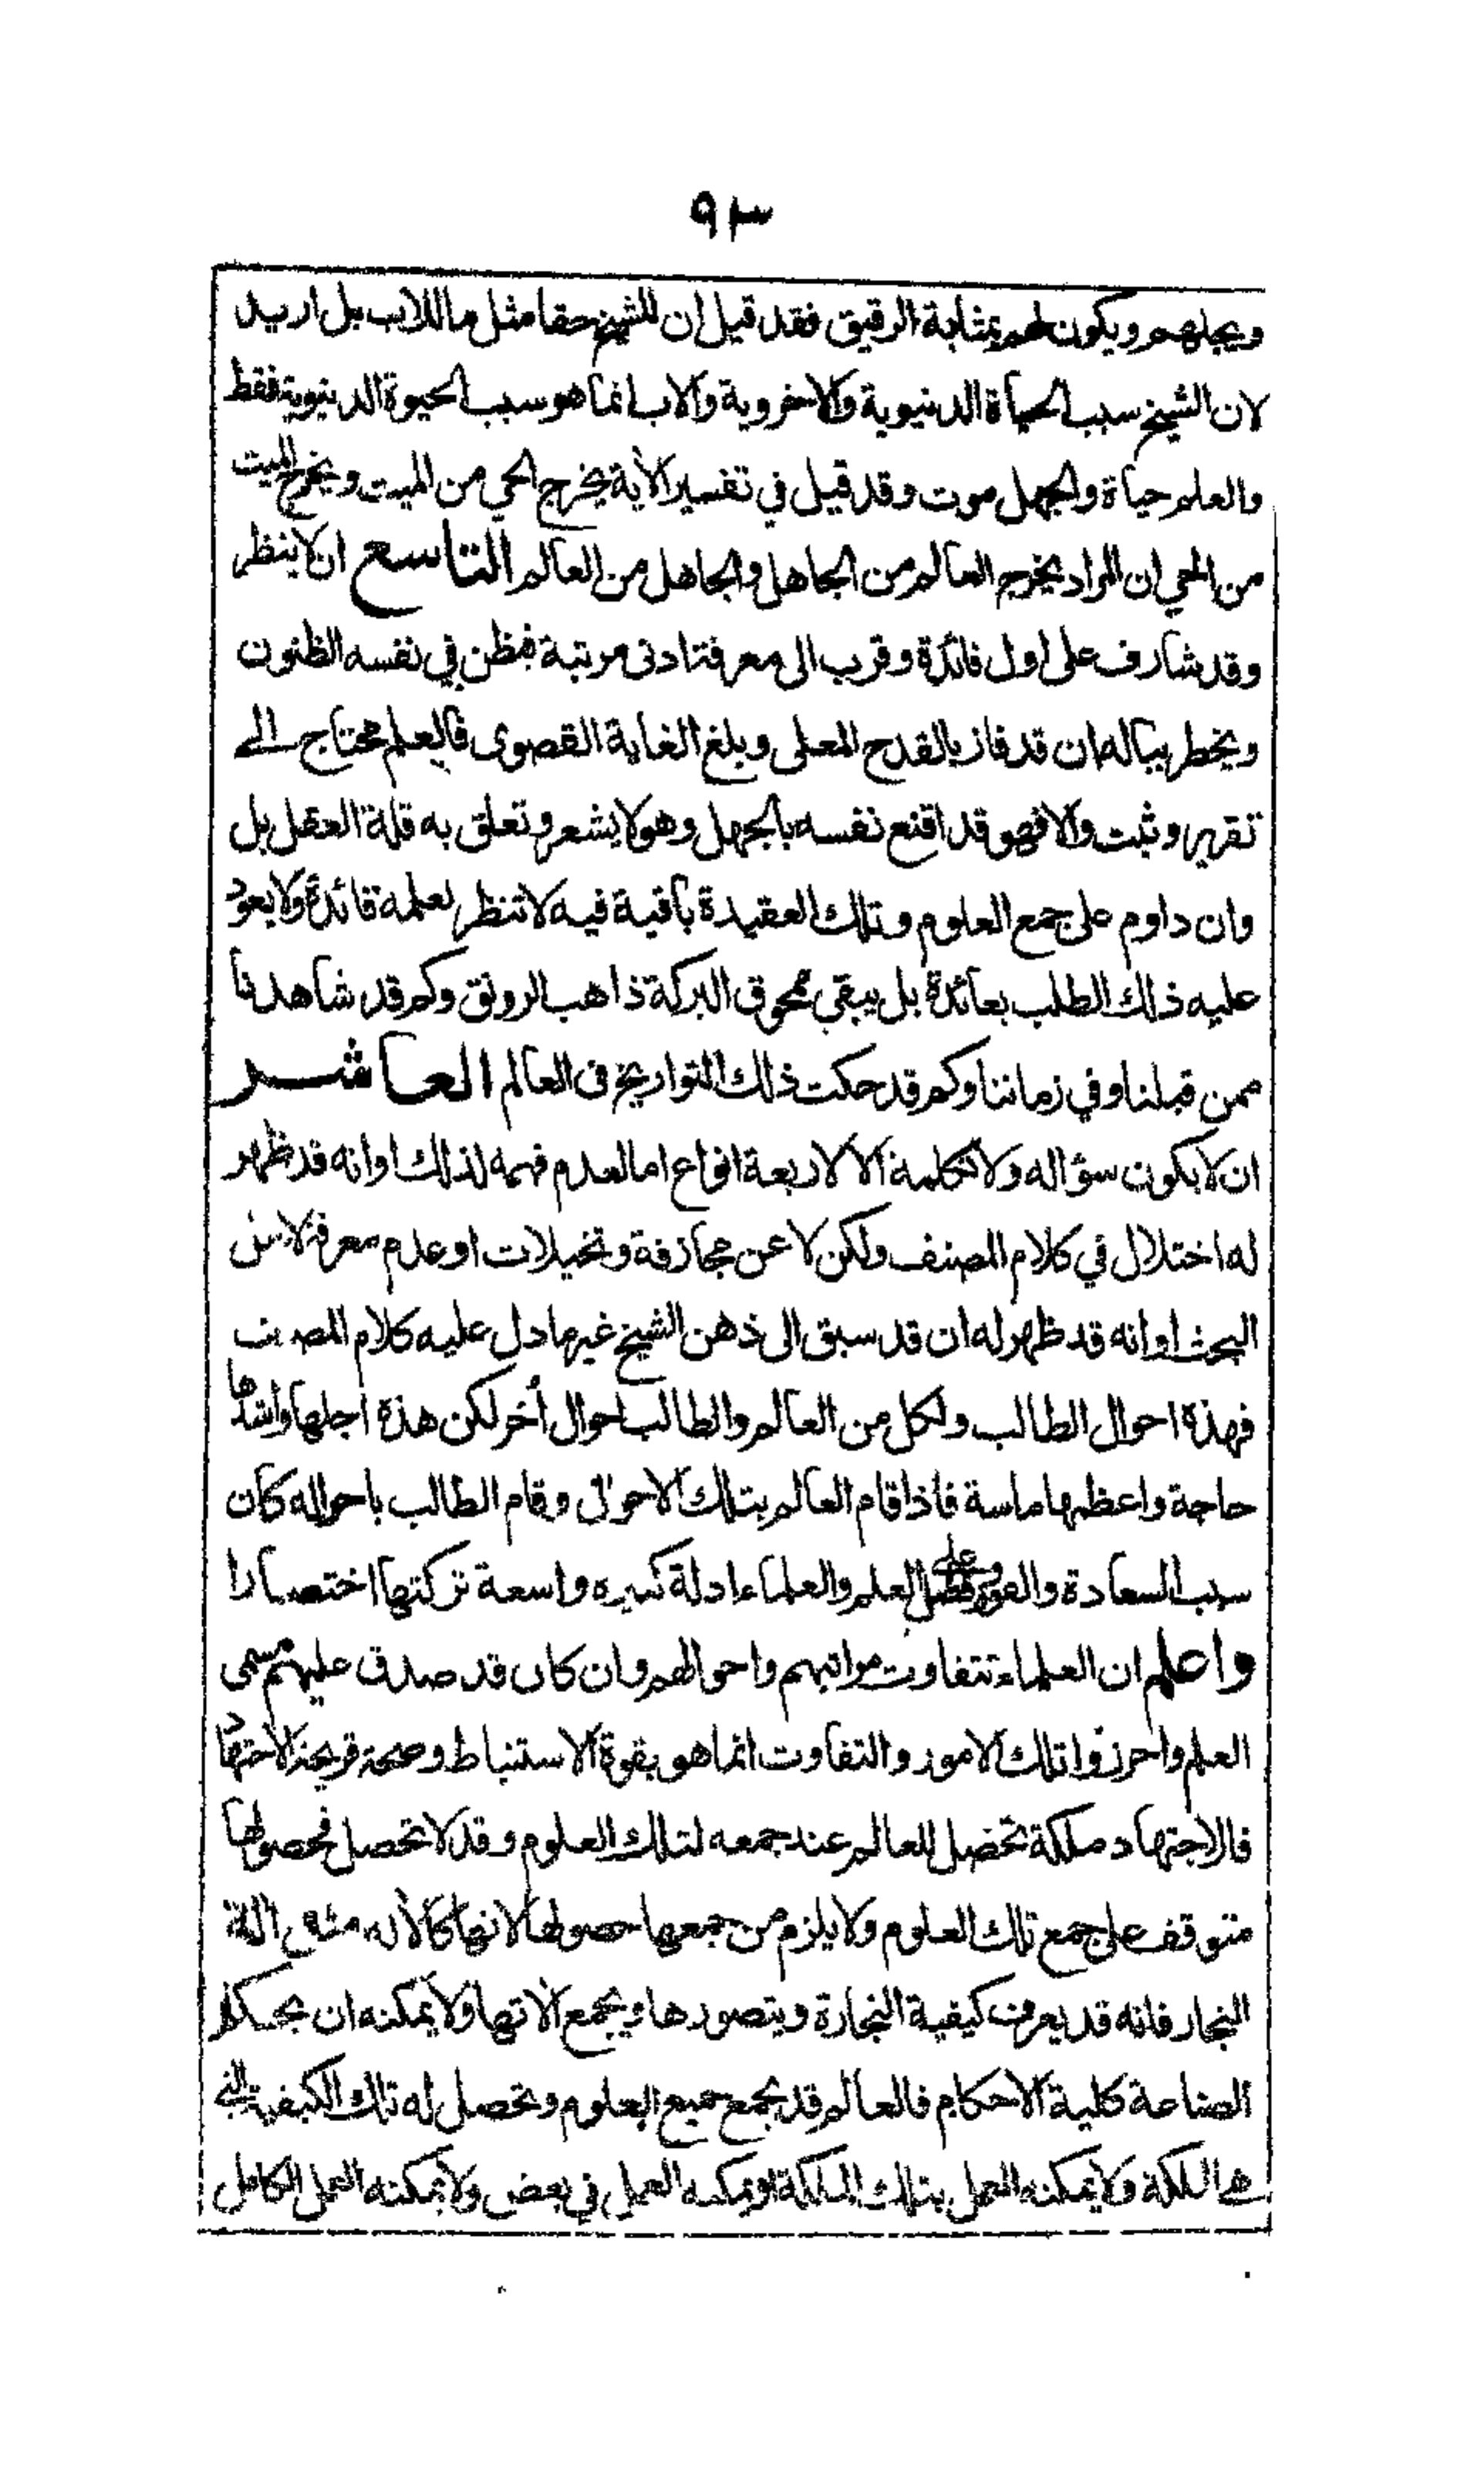 ٩٣
ويجلهم ويكون لهم بمثابة الرقيق فقد قيل ان للشيخ حقا مثل ما للاب بل ازيد
لان الشيخ سبب الحياة الدنيوية والاخروية والاب انما هو سبب الحيوة الدنيوية فقط
والعلم حياة والجهل موت وقد قيل في تفسير الآية يخرج الحي من الميت ويخرج الميت
من الحي ان المراد يخرج العالم من الجاهل والجاهل من العالم التاسع ان لا ينظر
وقد شارف على اول فائدة وقرب الى معرفة ادنى مرتبة فيظن في نفسه الظنون
ويخطر بباله ان قد فاز بالقدح المعلى وبلغ الغاية القصوى فالعلم محتاج الى
تقرير وثبت والا فهو قد اقنع نفسه بالجهل وهو لا يشعر وتعلق به قلة العقل بل
وان داوم على جمع العلوم وتلك العقيدة باقية فيه لا تنظر لعلمه فائدة ولا يعود
عليه ذلك الطلب بعائدة بل يبقى ممحوق البركة ذاهب الرونق وكم قد شاهدنا
ممن قبلنا وفي زماننا وكم قد حكت ذلك التواريخ في العالم العاشر
ان لا يكون سؤاله ولا تكلمه الا لاربعة انواع اما لعدم فهمه لذلك او انه قد ظهر
له اختلال في كلام المصنف ولكن لا عن مجازفة وتخيلات او عدم معرفة لاس
البحث او انه قد ظهر له ان قد سبق الى ذهن الشيخ غير ما دل عليه كلام المصنف
فهذه احوال الطالب ولكل من العالم والطالب احوال أخر لكن هذه اجلها واشدها
حاجة واعظمها ماسة فاذا قام العالم بتلك الاحوال وقام الطالب باحواله كان
سبب السعادة والفوز وعلى فضل العلم والعلماء ادلة كثيره واسعة تركتها اختصارا
واعلم ان العلماء تتفاوت مراتبهم واحوالهم وان كان قد صدق عليهم مسمى
العلم واحرزوا تلك الامور والتفاوت انما هو بقوة الاستنباط وصحة قريحة الاجتهاد
فالاجتهاد ملكة تحصل للعالم عند جمعه لتلك العلوم وقد لا تحصل فحصولها
متوقف على جمع تلك العلوم ولا يلزم من جمعها حصولها لانها كالآلة آلة
النجار فانه قد يعرف كيفية النجارة ويتصورها ويجمع آلاتها ولا يمكنه ان يحكم
الصناعة كلية الاحكام فالعالم قد يجمع جميع العلوم وتحصل له تلك الكيفية التي
هي الملكة ولا يمكنه العمل بتلك الملكة او يمكنه العمل في بعض ولا يمكنه العمل الكامل